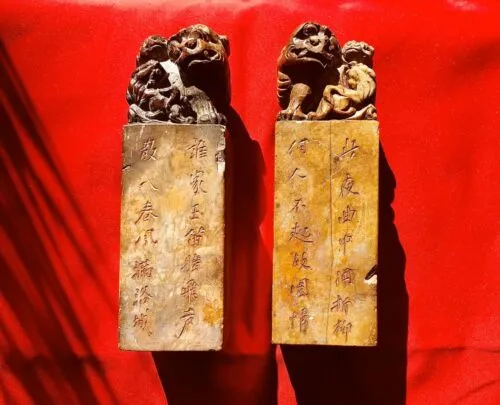 誰家玉笛暗飛声
散入春风滿洛城
此夜曲中闻折柳
何人不起故園情